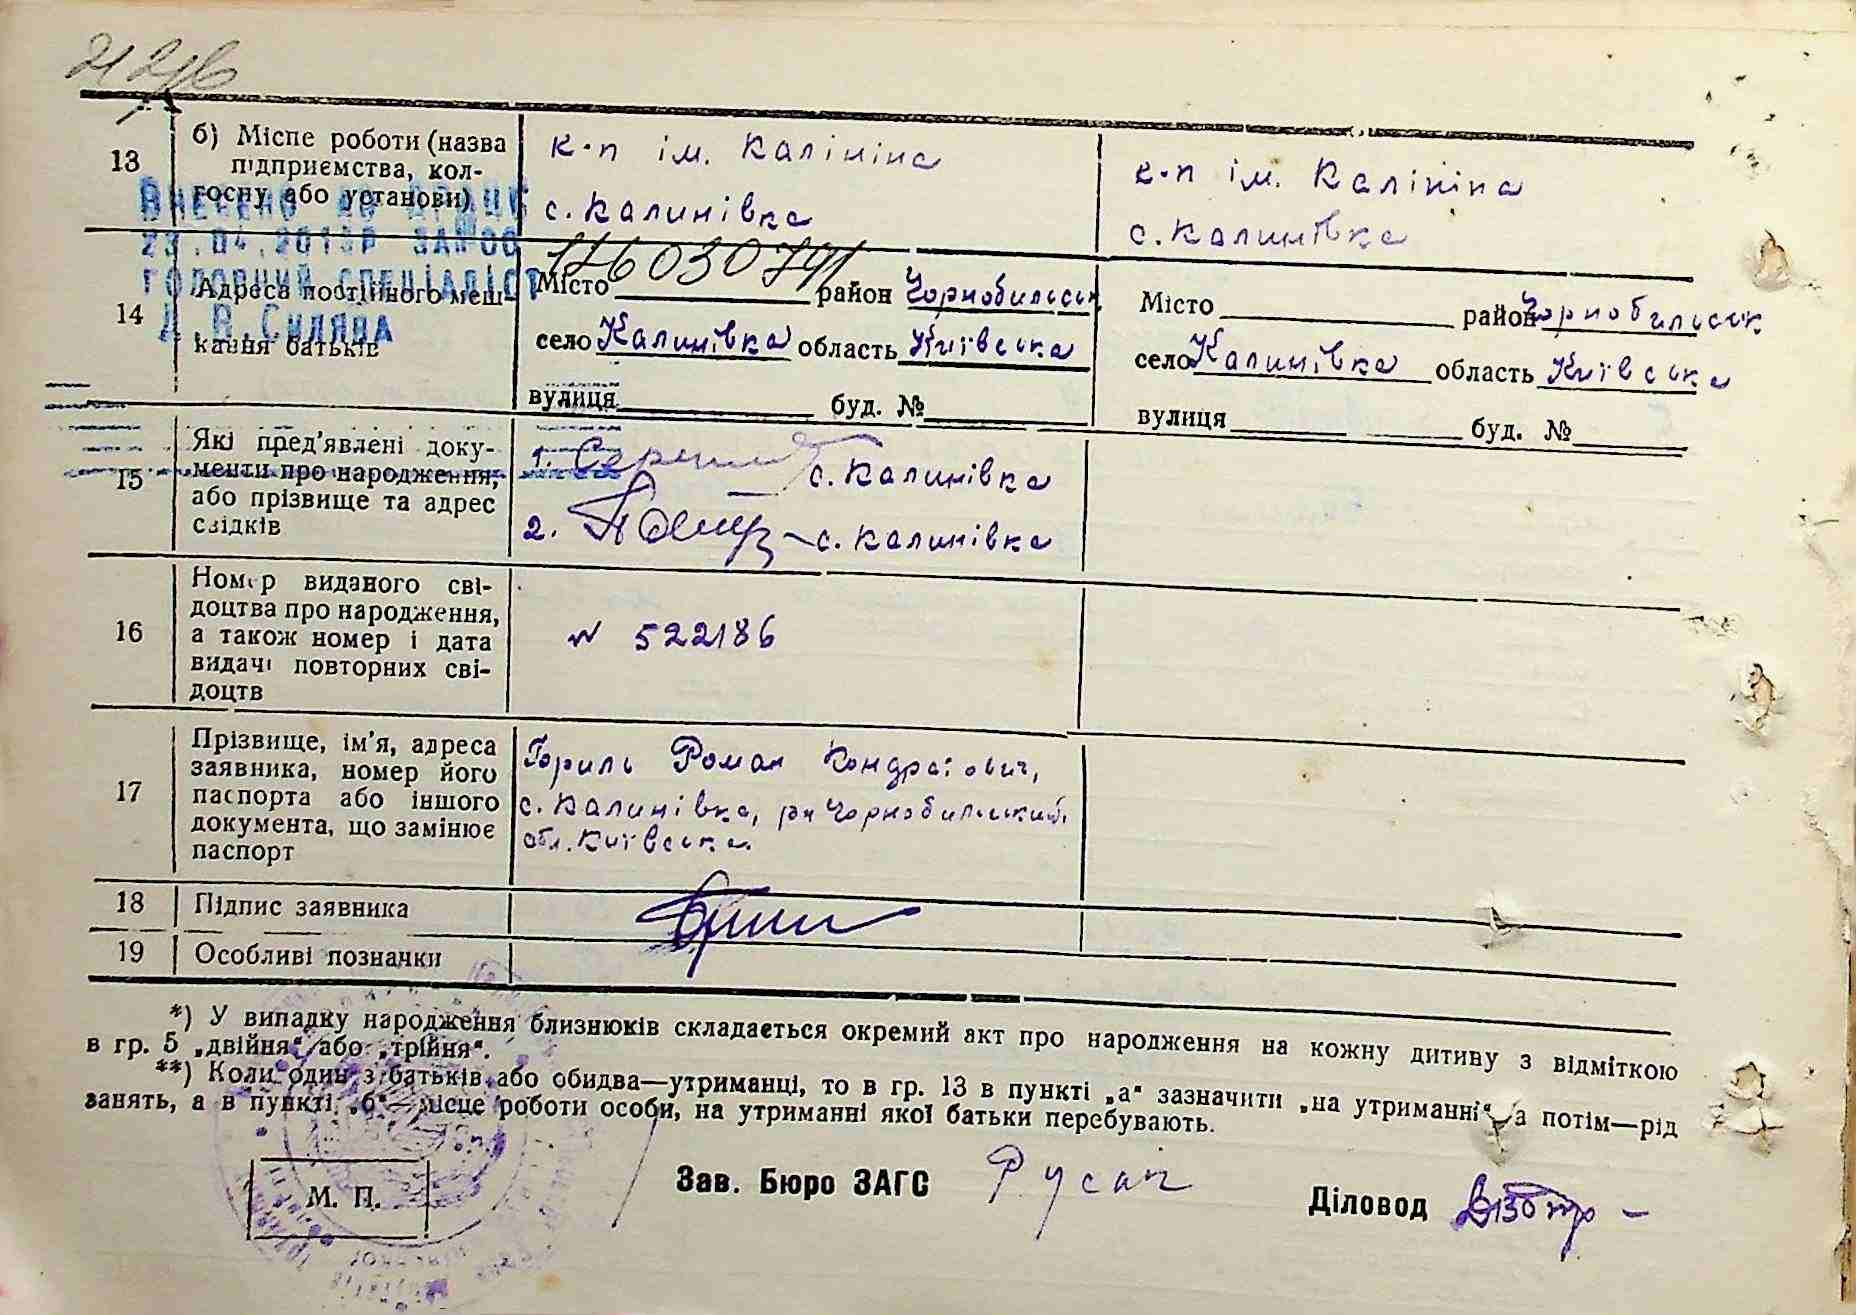 13
б) Місце роботи (назва
підприємства, кол-
госпу або установи)
к-п ім. Калініна
с. Калинівка
к-п ім. Калініна
с. Калинівка
Внесено до
23.04.2013р
головний спеціаліст
176030791
14
Адреса постійного меш-
кання батьків
Місто район Чорнобильськ
село Калинівка область Київська
вулиця буд. №
Місто район Чорнобильськ
село Калинівка область Київська
вулиця буд. №
15
Які пред'явлені доку-
менти про народження,
або прізвище та адрес
свідків
1. с. Калинівка
2. с. Калинівка
16
Номер виданого сві-
доцтва про народження,
а також номер і дата
видачі повторних сві-
доцтв
№ 522186
17
Прізвище, ім'я, адреса
заявника, номер його
паспорта або іншого
документа, що замінює
паспорт
Гориль Роман Кондратович,
с. Калинівка, р-н Чорнобильський,
обл. Київська.
18
Підпис заявника
19
Особливі позначки
*) У випадку народження близнюків складається окремий акт про народження на кожну дитину з відміткою
в гр. 5 „двійня“ або „трійня“.
**) Коли один з батьків або обидва—утриманці, то в гр. 13 в пункті „а“ зазначити „на утриманні“, а потім—рід
занять, а в пункті „б“—місце роботи особи, на утриманні якої батьки перебувають.
М. П.
Зав. Бюро ЗАГС Русак
Діловод